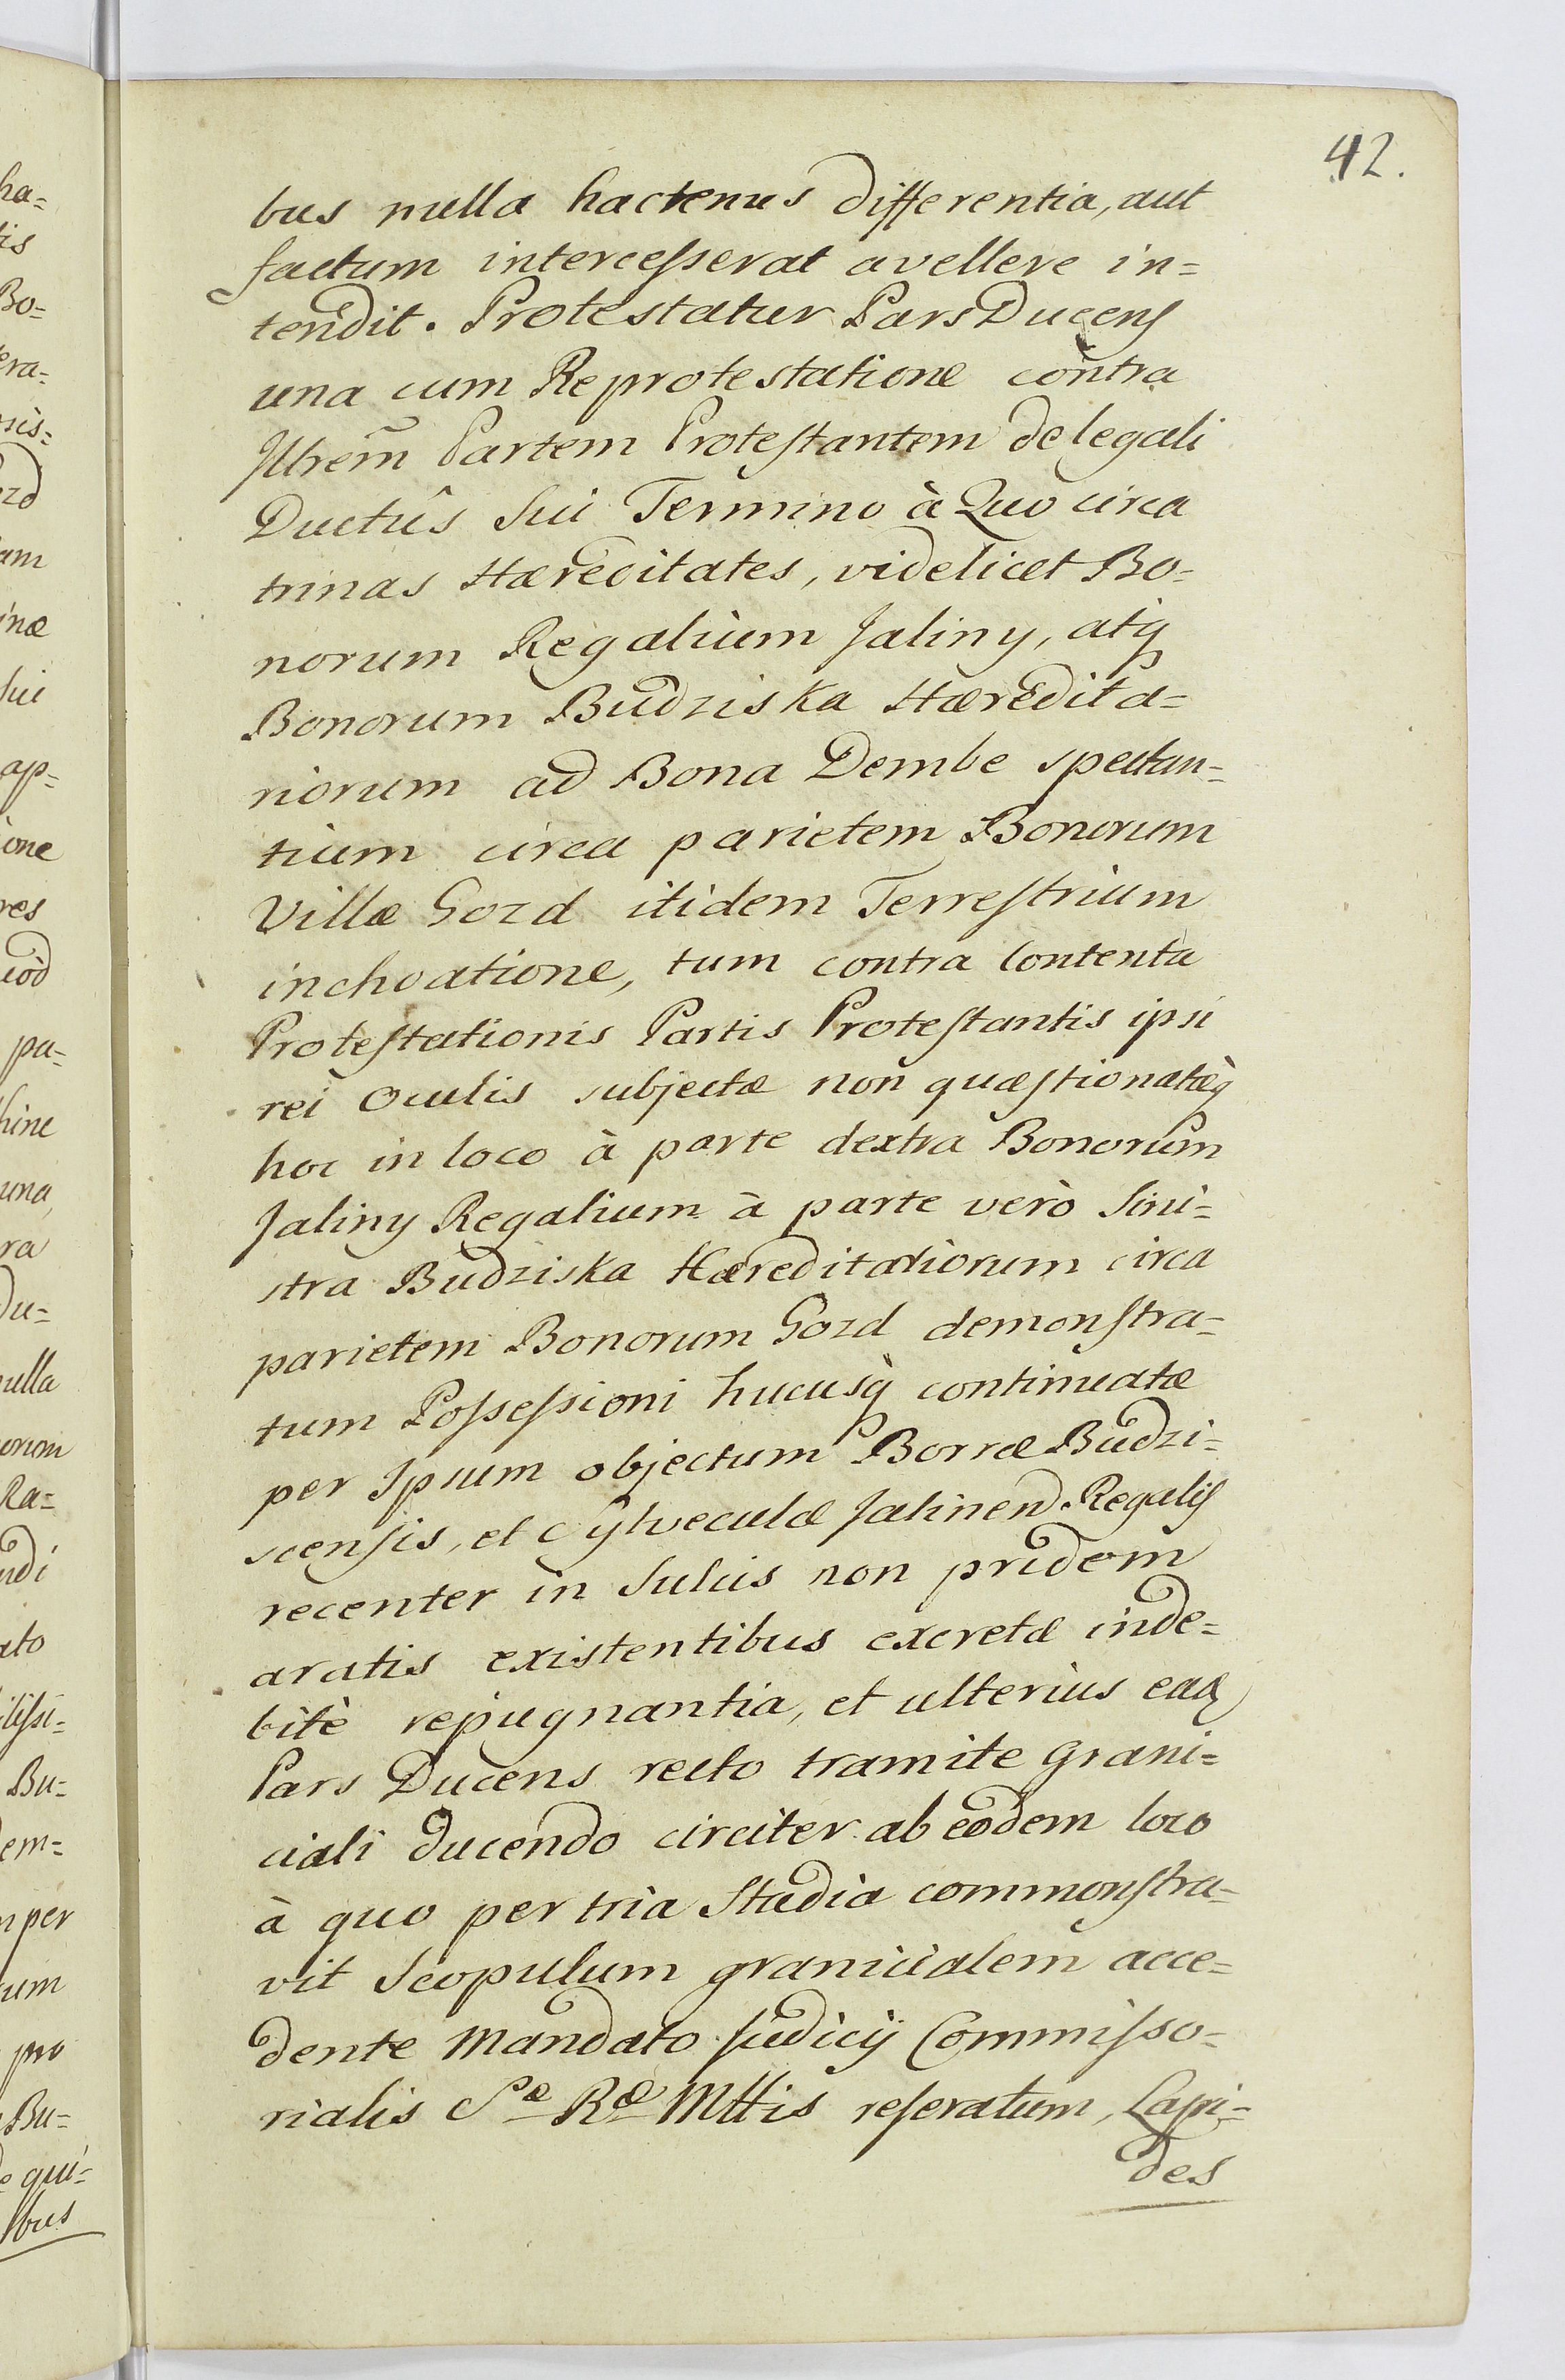 42.
bus nulla hactenus differentia, aut
factum intercesserat avellere in=
tendit. Protestatur Pars Ducens
una cum Reprotestatione contra
Illrem̃ Partem Protestantem de legali
Ductûs Sui Termino à Quo circa
trinas Hæreditates, videlicet Bo=
norum Regalium Jaliny, atq
Bonorum Budziska Hæredita=
riorum ad Bona Dembe spectan=
tium circa parietem Bonorum
Villæ Gozd itidem Terrestrium
inchoatione, tum contra Contenta
Protestationis Partis Protestantis ipsi
rei Oculis subjectæ non quæstionatæq̀
hoc in loco à parte dextra Bonorum
Jaliny Regalium à parte verò Sini=
stra Budziska Hæreditariorum circa
parietem Bonorum Gozd demonstra=
tum Possessioni hucusq̀ continuatæ
per Ipsum objectum Borræ Budzi=
scensis, et Sylveculæ Jalinen. Regalis
recenter in Sulcis non pridem
aratis existentibus excretæ inde=
bitè repugnantia, et ulterius eaq
Pars Ducens recto tramite Grani=
ciali ducendo circiter ab eodem loco
à quo per tria Stadia commonstra=
vit Scopulum granicialem acce=
dente Mandato Judicij Commisso=
rialis Sæ Ræ Mttis reseratum, Lapi=
des
ha=
tis
Bo=
era=
am
inæ
Sui
ap=
ione
res
pa=
hinc
una,
ra
Du=
nulla
orum
Ra=
ndi
ato
ilissi=
Bu=
em=
n per
um
pro
Bu=
e qui=
bus